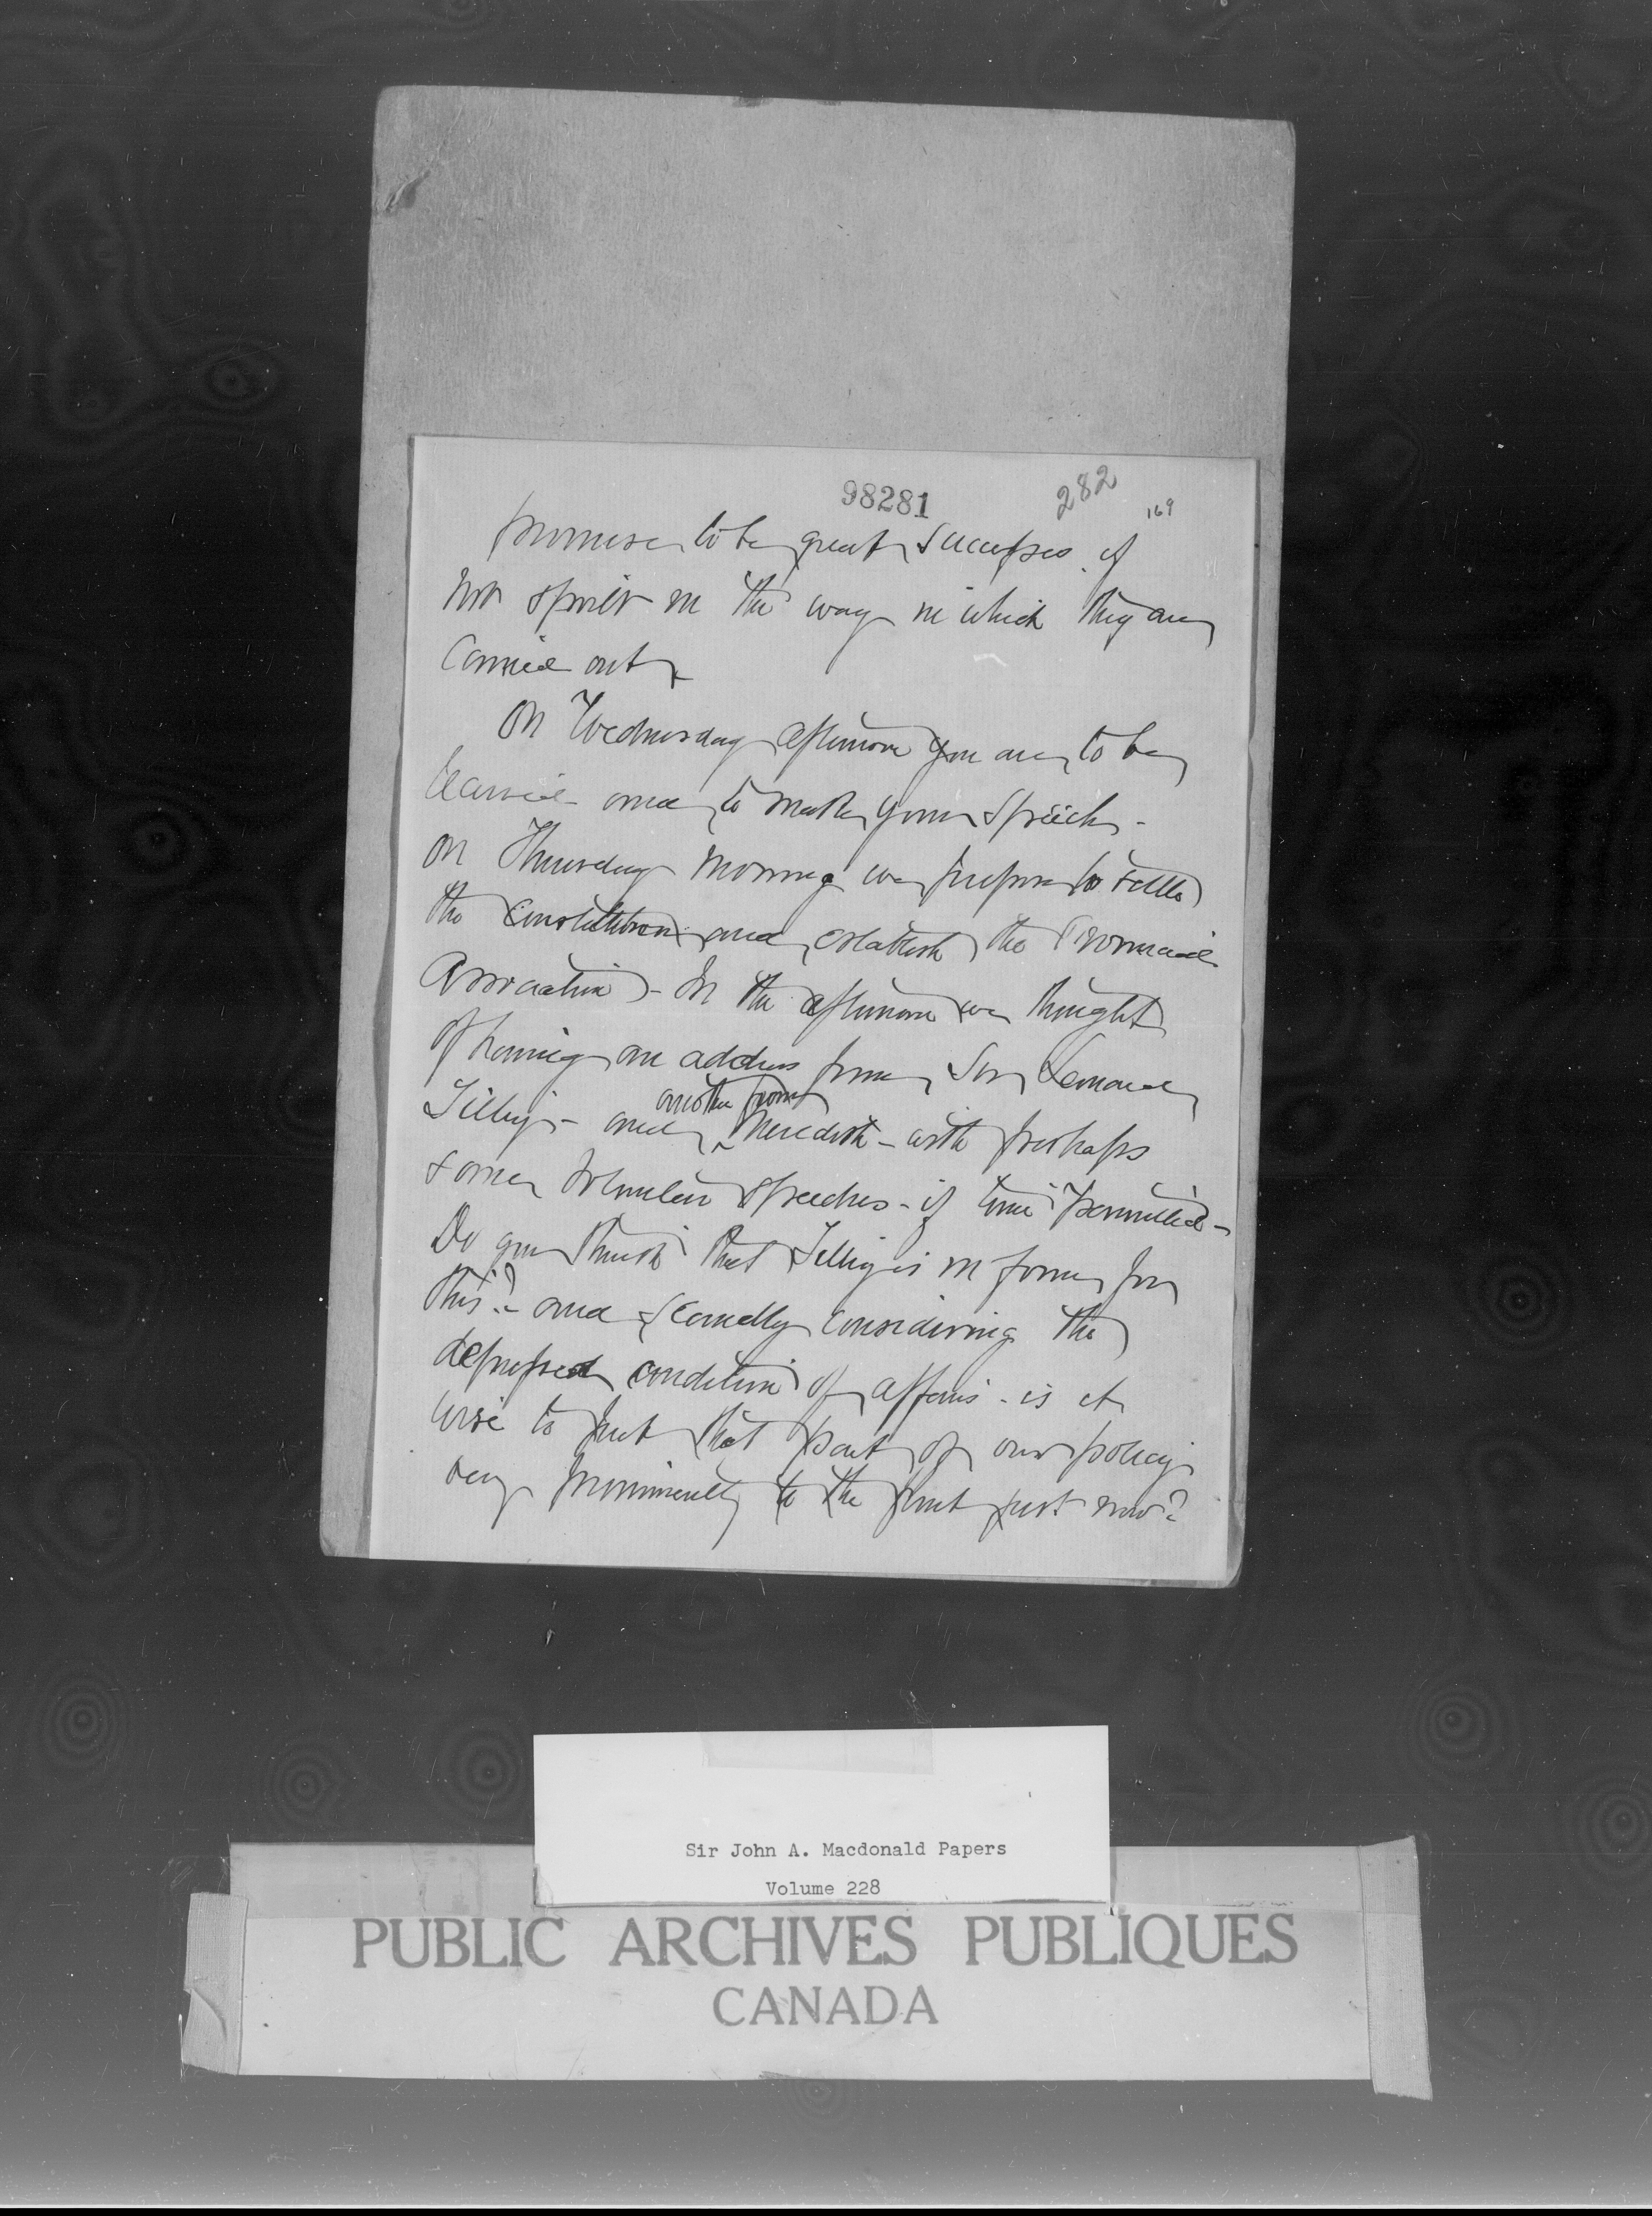 98281
282
169
promise to be great successes if
not spoilt in the way in which they are
carried out
On Wednesday afternoon you are to be
and to make your speech -
On Thursday morning we propose to settle
the Constitution and establish the Provincial
Association - In the afternoon we thought
of having an address from Sir Leonard
another from
Tilley - and Meredith - with perhaps
some volunteer speeches - if time permitted -
Do you think that Tilley is in form for
this? - and secondly considering the
depressed condition of affairs - is it
wise to put that part of our policy
very prominently to the front just now?
Sir John A. Macdonald Papers
Volume 228
PUBLIC ARCHIVES PUBLIQUES
CANADA